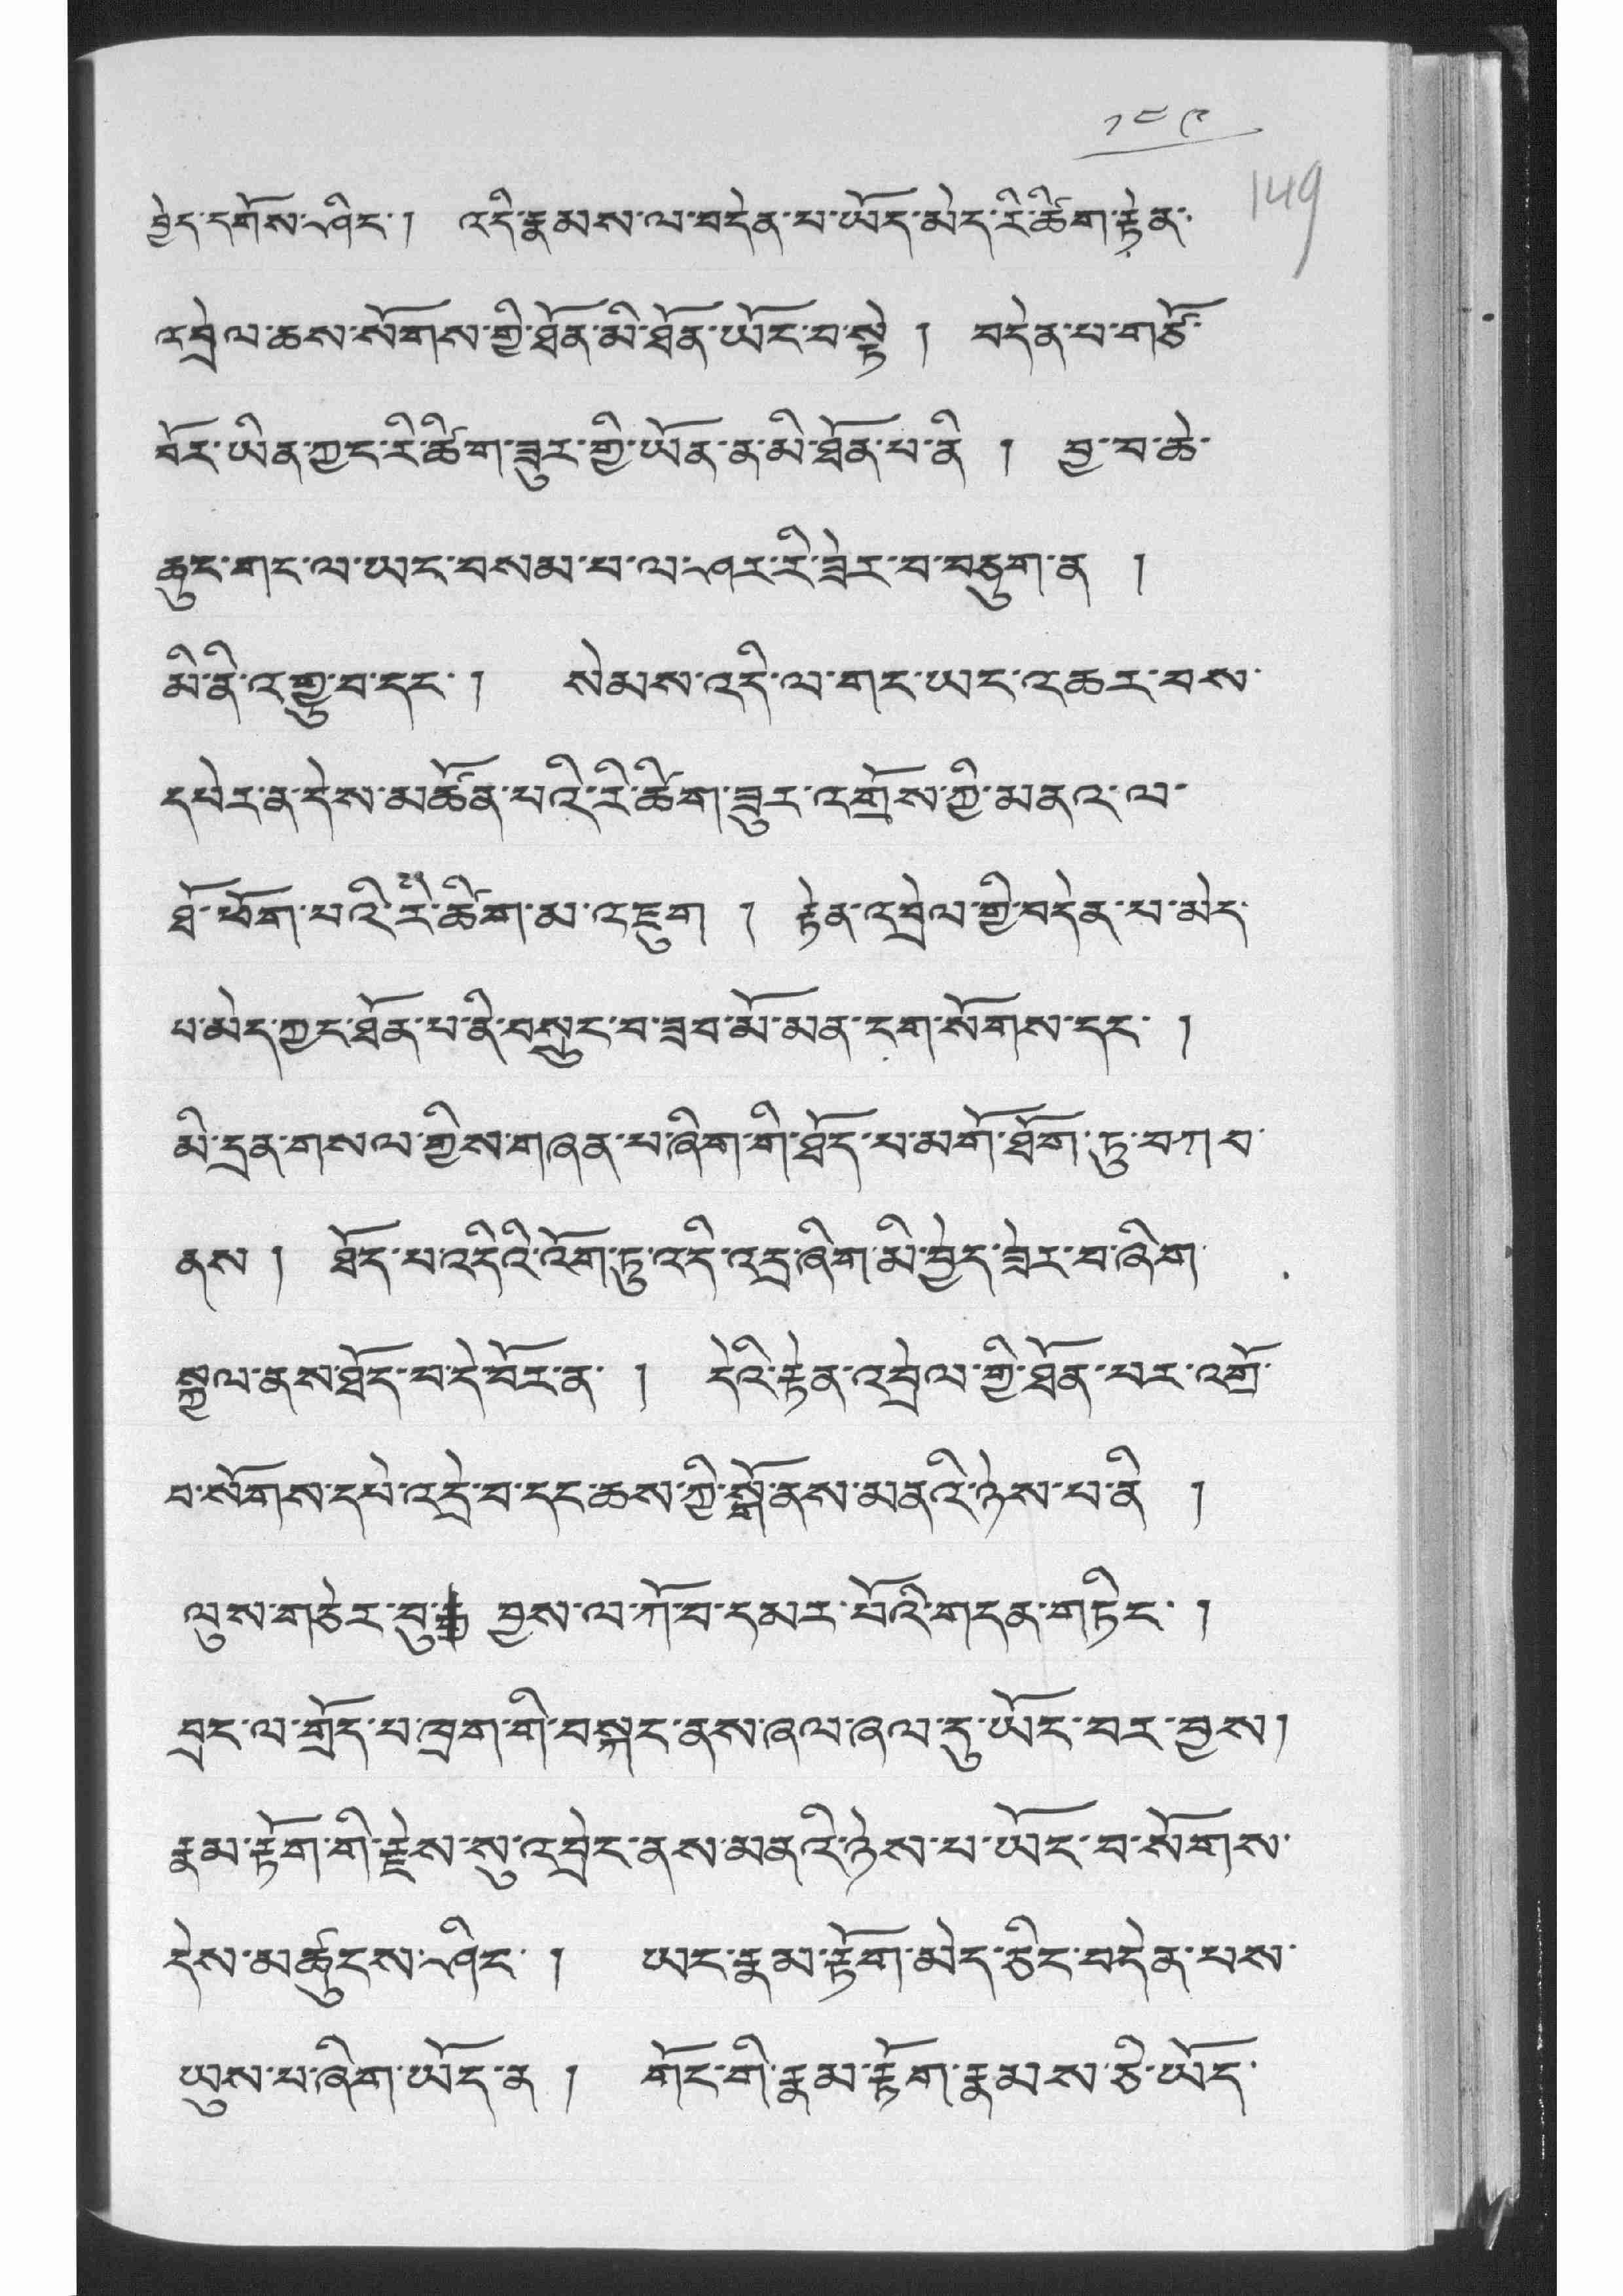 ༡༤༩
149
བྱེད་དགོས་ཤིང་། འདི་རྣམས་ལ་བདེན་པ་ཡོད་མེད་རི་ཚིག་རྟེན་
འབྲེལ་ཆས་སོགས་ཀྱི་ཐོན་མི་ཐོན་ཡོང་བ་སྟེ། བདེན་པ་གཙོ་
བོར་ཡིན་ཀྱང་རི་ཚིག་ཟུར་གྱི་ཡོན་ན་མི་ཐོན་པ་ནི། བྱ་བ་ཆེ་
ཆུང་གང་ལ་ཡང་བསམ་པ་ལ་ཤར་རི་ཟེར་བ་བཅུག་ན །
མི་ནི་འགྱུ་བ་དང་། སེམས་འདི་ལ་གང་ཡང་འཆར་བས་
དཔེར་ན་དེས་མཚོན་པའི་རི་ཚིག་ཟུར་འགྲོས་ཀྱི་མནའ་ལ་
ཐོ་ཕོག་པའི་རི་ཚིག་མ་འཇུག། རྟེན་འབྲེལ་གྱི་བདེན་པ་མེད་
པ་མེད་ཀྱང་ཐོན་པ་ནི་བསྲུང་བ་ཟབ་མོ་མན་ངག་སོགས་དང་།
མི་དྲན་གསལ་གྱིས་གཞན་པ་ཞིག་གི་ཐོད་པ་མགོ་ཐོག་ཏུ་བཀབ་
ནས། ཐོད་པ་འདིའི་འོག་ཏུ་འདི་འདྲ་ཞིག་མི་བྱེད་ཟེར་བ་ཞིག་
སྐྱལ་ནས་ཐོད་པ་དེ་བོར་ན་། དེའི་རྟེན་འབྲེལ་གྱི་ཐོན་པར་འགྲོ་
བ་སོགས་དཔེ་འདྲེ་བ་དང་ཆས་ཀྱི་སྒོ་ནས་མནའི་ཉེས་པ་ནི །
ལུས་གཅེར་བུ་ བྱས་ལ་ཀོ་བ་དམར་པོའི་གདན་གཏིང་།
བྲང་ལ་གྲོད་པ་ཁྲག་གི་བསྐང་ནས་ཞལ་ཞལ་དུ་ཡོང་བར་བྱས།
རྣམ་རྟོག་གི་རྗེས་སུ་འབྲེང་ནས་མནའི་ཉེས་པ་ཡོང་བ་སོགས་
དེས་མཚུངས་ཤིང་། ཡང་རྣམ་རྟོག་མེད་ཅིང་བདེན་པས་
ཡུས་པ་ཞིག་ཡོད་ན། གོང་གི་རྣམ་རྟོག་རྣམས་ཅི་ཡོད་